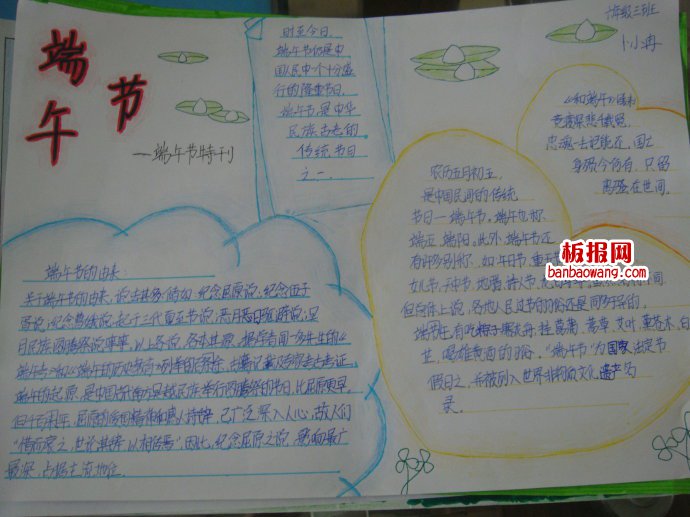 端
午
节
——端午节特刊
时至今日
端午节仍是中
国人民中一个十分盛
行的隆重节日.
端午节是中华
民族古老的
传统节日
之一.
三班
小冉
《和端午》
竞渡深悲千载冤,
忠魂一去讵能还, 国亡
身殒今何有, 只留
离骚在世间.
农历五月初五,
是中国民间的传统
节日—端午节, 端午也称
端五, 端阳. 此外, 端午节还
有许多别称, 如午日节、重五节
地腊、诗人节、
但总体上说, 各地人民过节的习俗还是同多于异的.
端午, 有吃粽子, 赛龙舟, 挂菖蒲、蒿草、艾叶, 薰苍术、白
芷, 喝雄黄酒的习俗, "端午节"为国家法定节
假日之一, 并被列入世界非物质文化遗产名
录.
板报网
banbaowang.com
端午节的由来
关于端午节的由来, 说法甚多, 诸如: 纪念屈原说; 纪念伍子
胥说; 纪念曹娥说; 起于三代夏至节说; 恶月恶日驱避说; 吴
月民族图腾祭说等等. 以上各说, 各本其源. 据学者闻一多先生的《
端午考》和《端午的历史教育》列举的
端午的起源, 是中国古代南方吴越民族举行图腾祭的节日, 比屈原更早.
但千百年来, 屈原的爱国精神和感人诗辞, 已广泛深入人心, 故人们
"惜而哀之, 世论其辞, 以相传焉", 因此, 纪念屈原之说, 影响最广
最深, 占据主流地位.